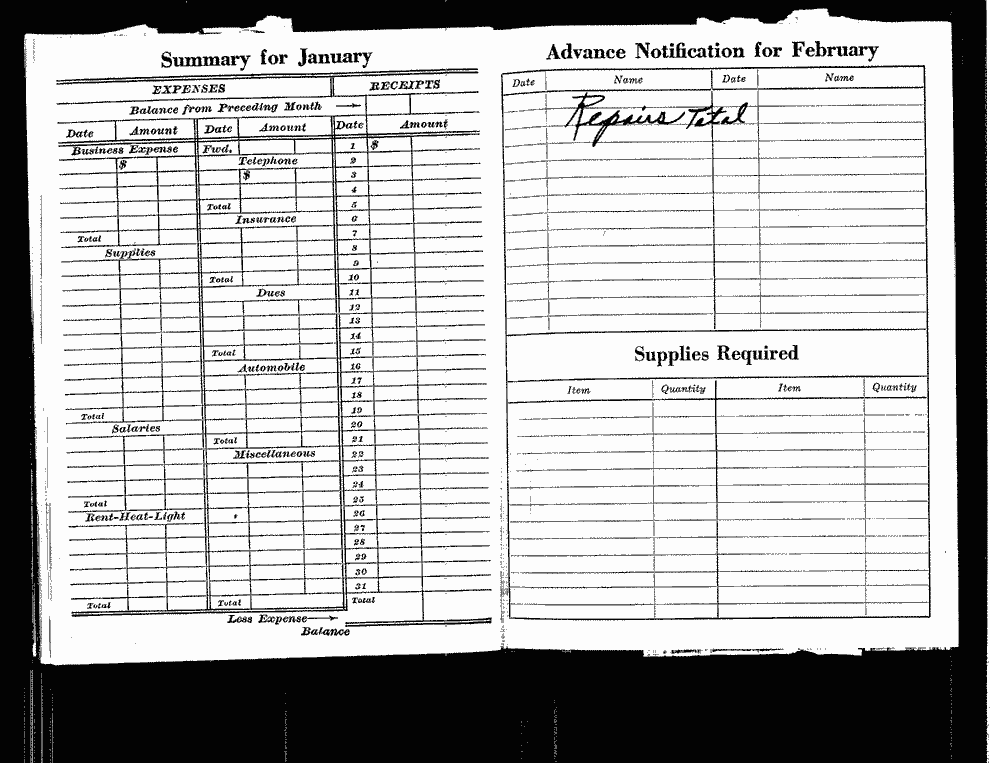 Summary for January
EXPENSES
RECEIPTS
Balance from Preceding Month
Date Amount Date Amount Date Amount
Business Expense Fwd. 1 $
$ Telephone 2
$ 3
4
Total 5
Insurance 6
Total 7
Supplies 8
9
Total 10
Dues 11
12
13
14
Total 15
Automobile 16
17
18
19
Total 20
Salaries Total 21
Miscellaneous 22
23
24
Total 25
Rent-Heat-Light 26
27
28
29
30
31
Total Total Total
Loss Expense
Balance
Advance Notification for February
Date Name Date Name
Repairs Total
Supplies Required
Item Quantity Item Quantity